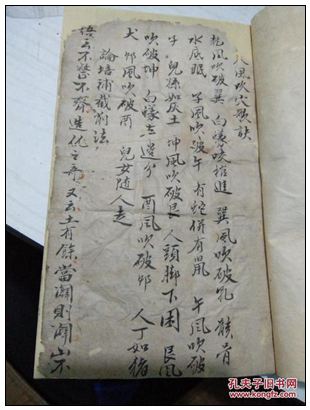 八風吹穴歌訣
乾風吹破巽 白蟻咬棺 巽風吹破乾 骸骨
水底眠 子風吹破午 有蛇併有鼠 午風吹破
子 兒孫如灰土 坤風吹破艮 人頭脚下困 艮風
吹破坤 白蟻去邊分 酉風吹破卯 人丁如猪
犬 卯風吹破酉 兒女隨人走
論培補裁剪法
不整不齊 造化之 又云土有餘當闢則闢 山不
孔夫子旧书网